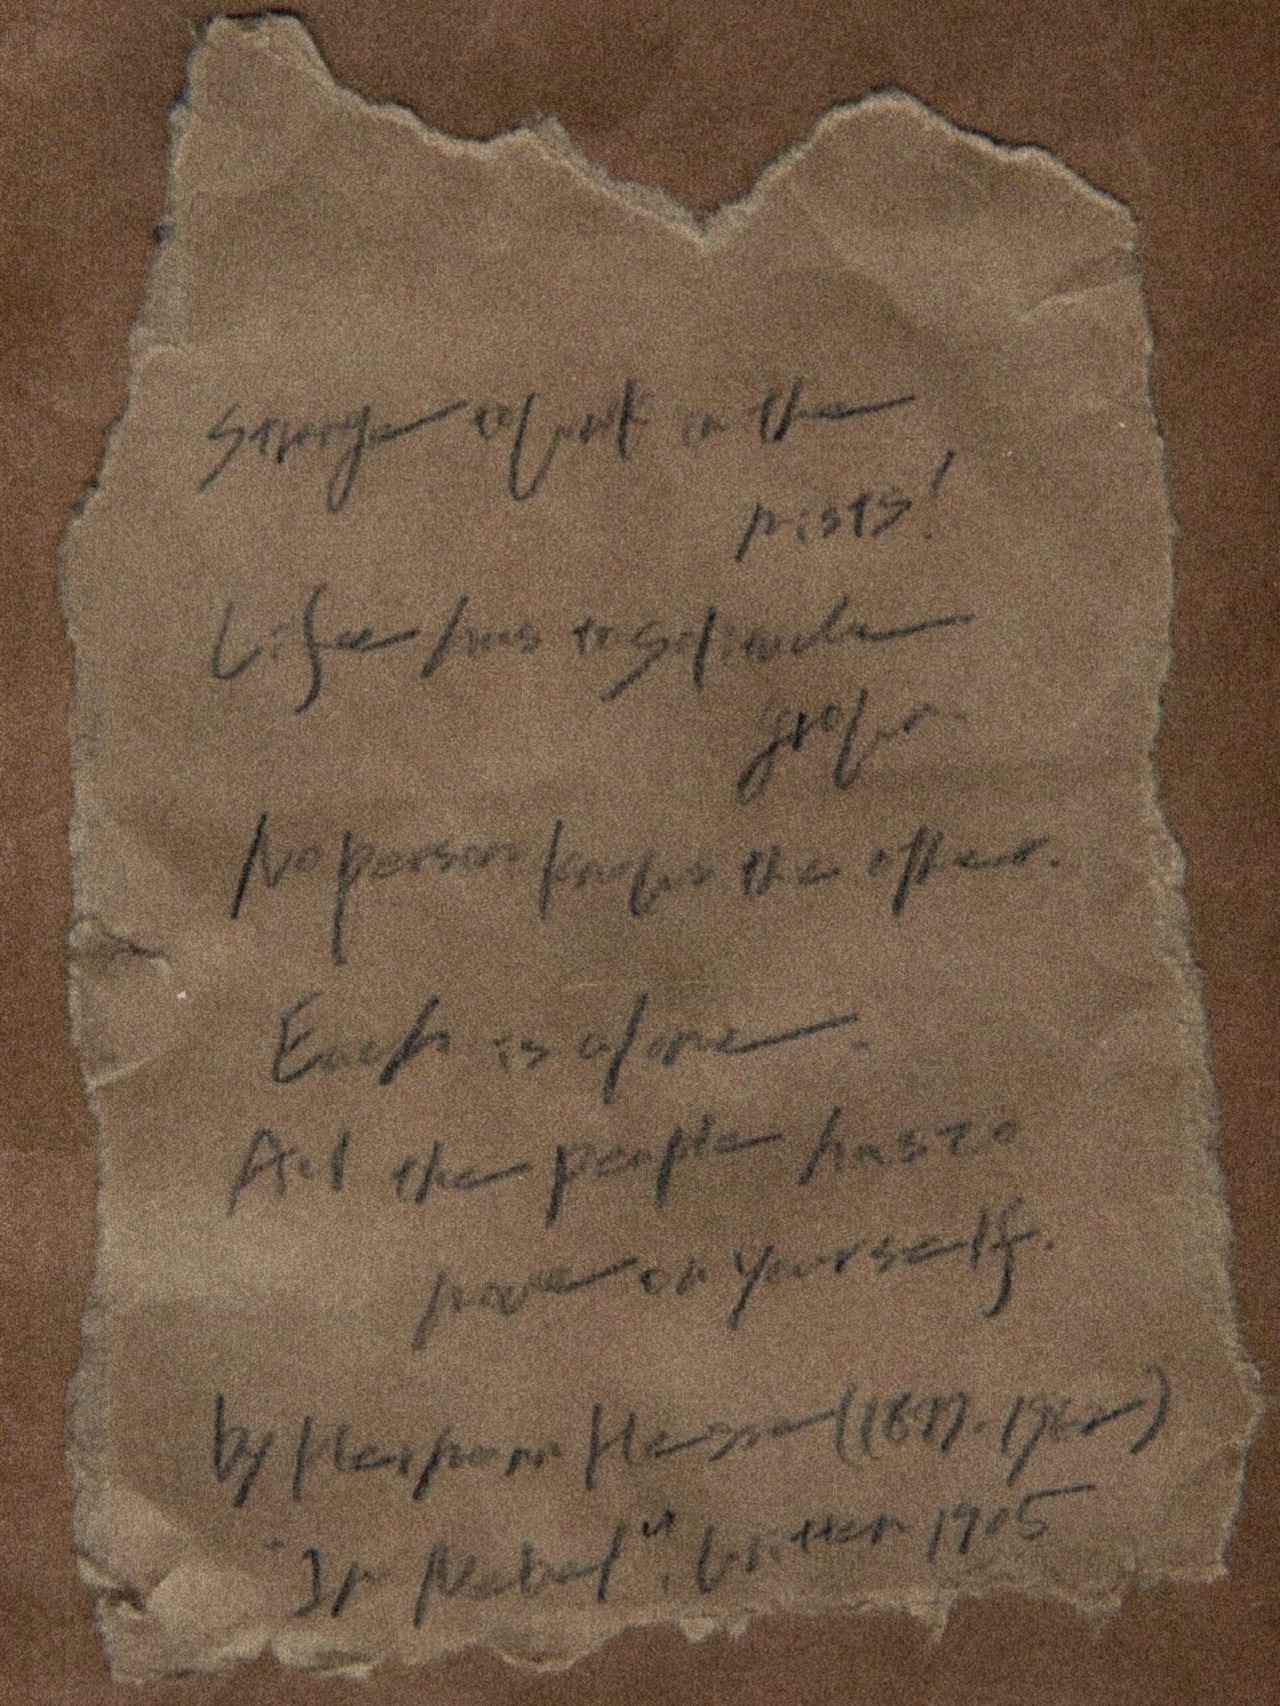 Strange to walk in the
mists!
Life has to solitude
grown.
No person knows the other.
Each is alone.
All the people has to
move on yourself.
by Hermann Hesse (1877-1962)
"Im Nebel", written 1905